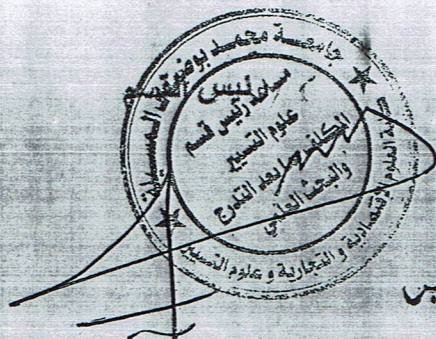 جامعة محمد بوضياف المسيلة
مساعد رئيس قسم
علوم التسيير
المكلف بما بعد التدرج
والبحث العلمي
كلية العلوم الاقتصادية و التجارية و علوم التسيير